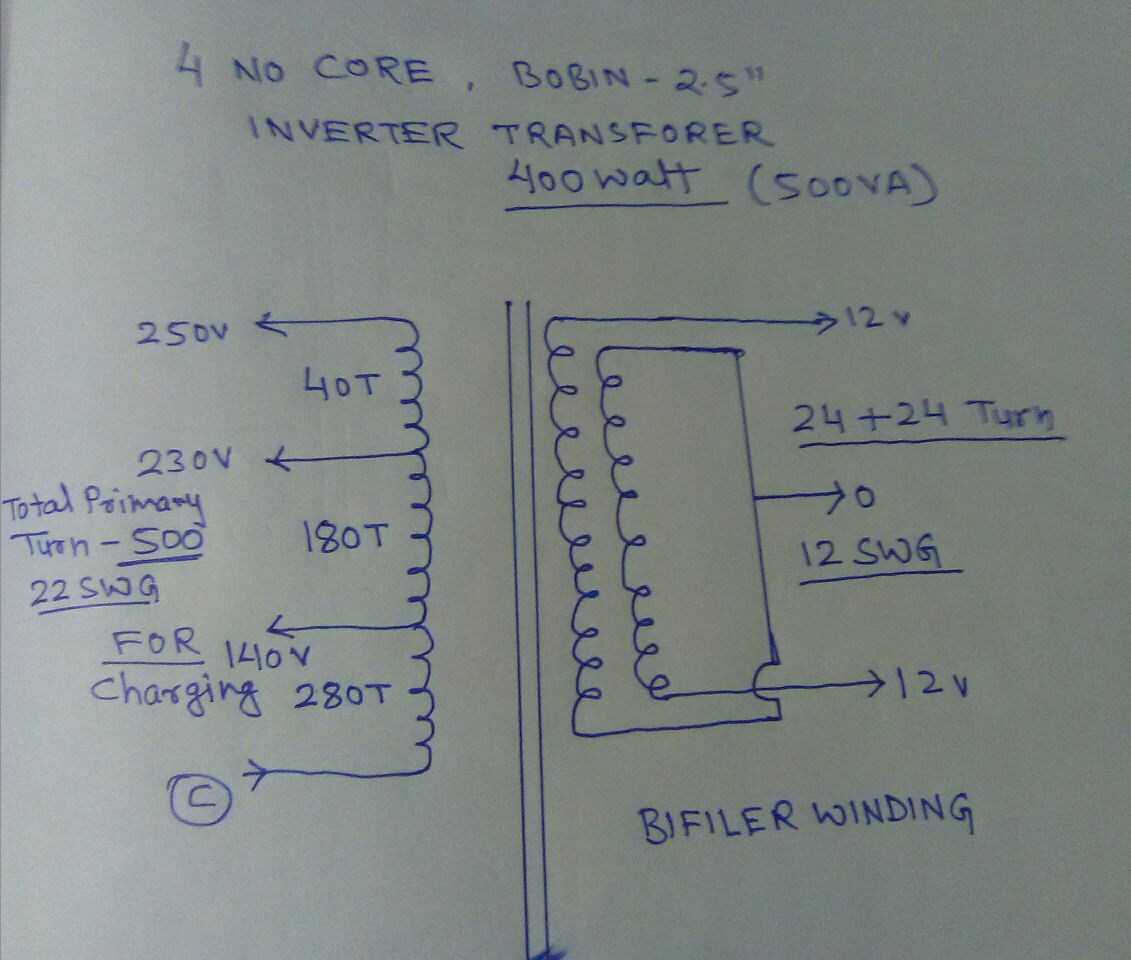 4 NO CORE, BOBIN - 2.5"
INVERTER TRANSFORER
400 watt (500VA)
250V
40T
230V
Total Primary
Turn - 500
22 SWG
180T
FOR 140V
Charging 280T
C
12 v
24 + 24 Turn
0
12 SWG
12 v
BIFILER WINDING